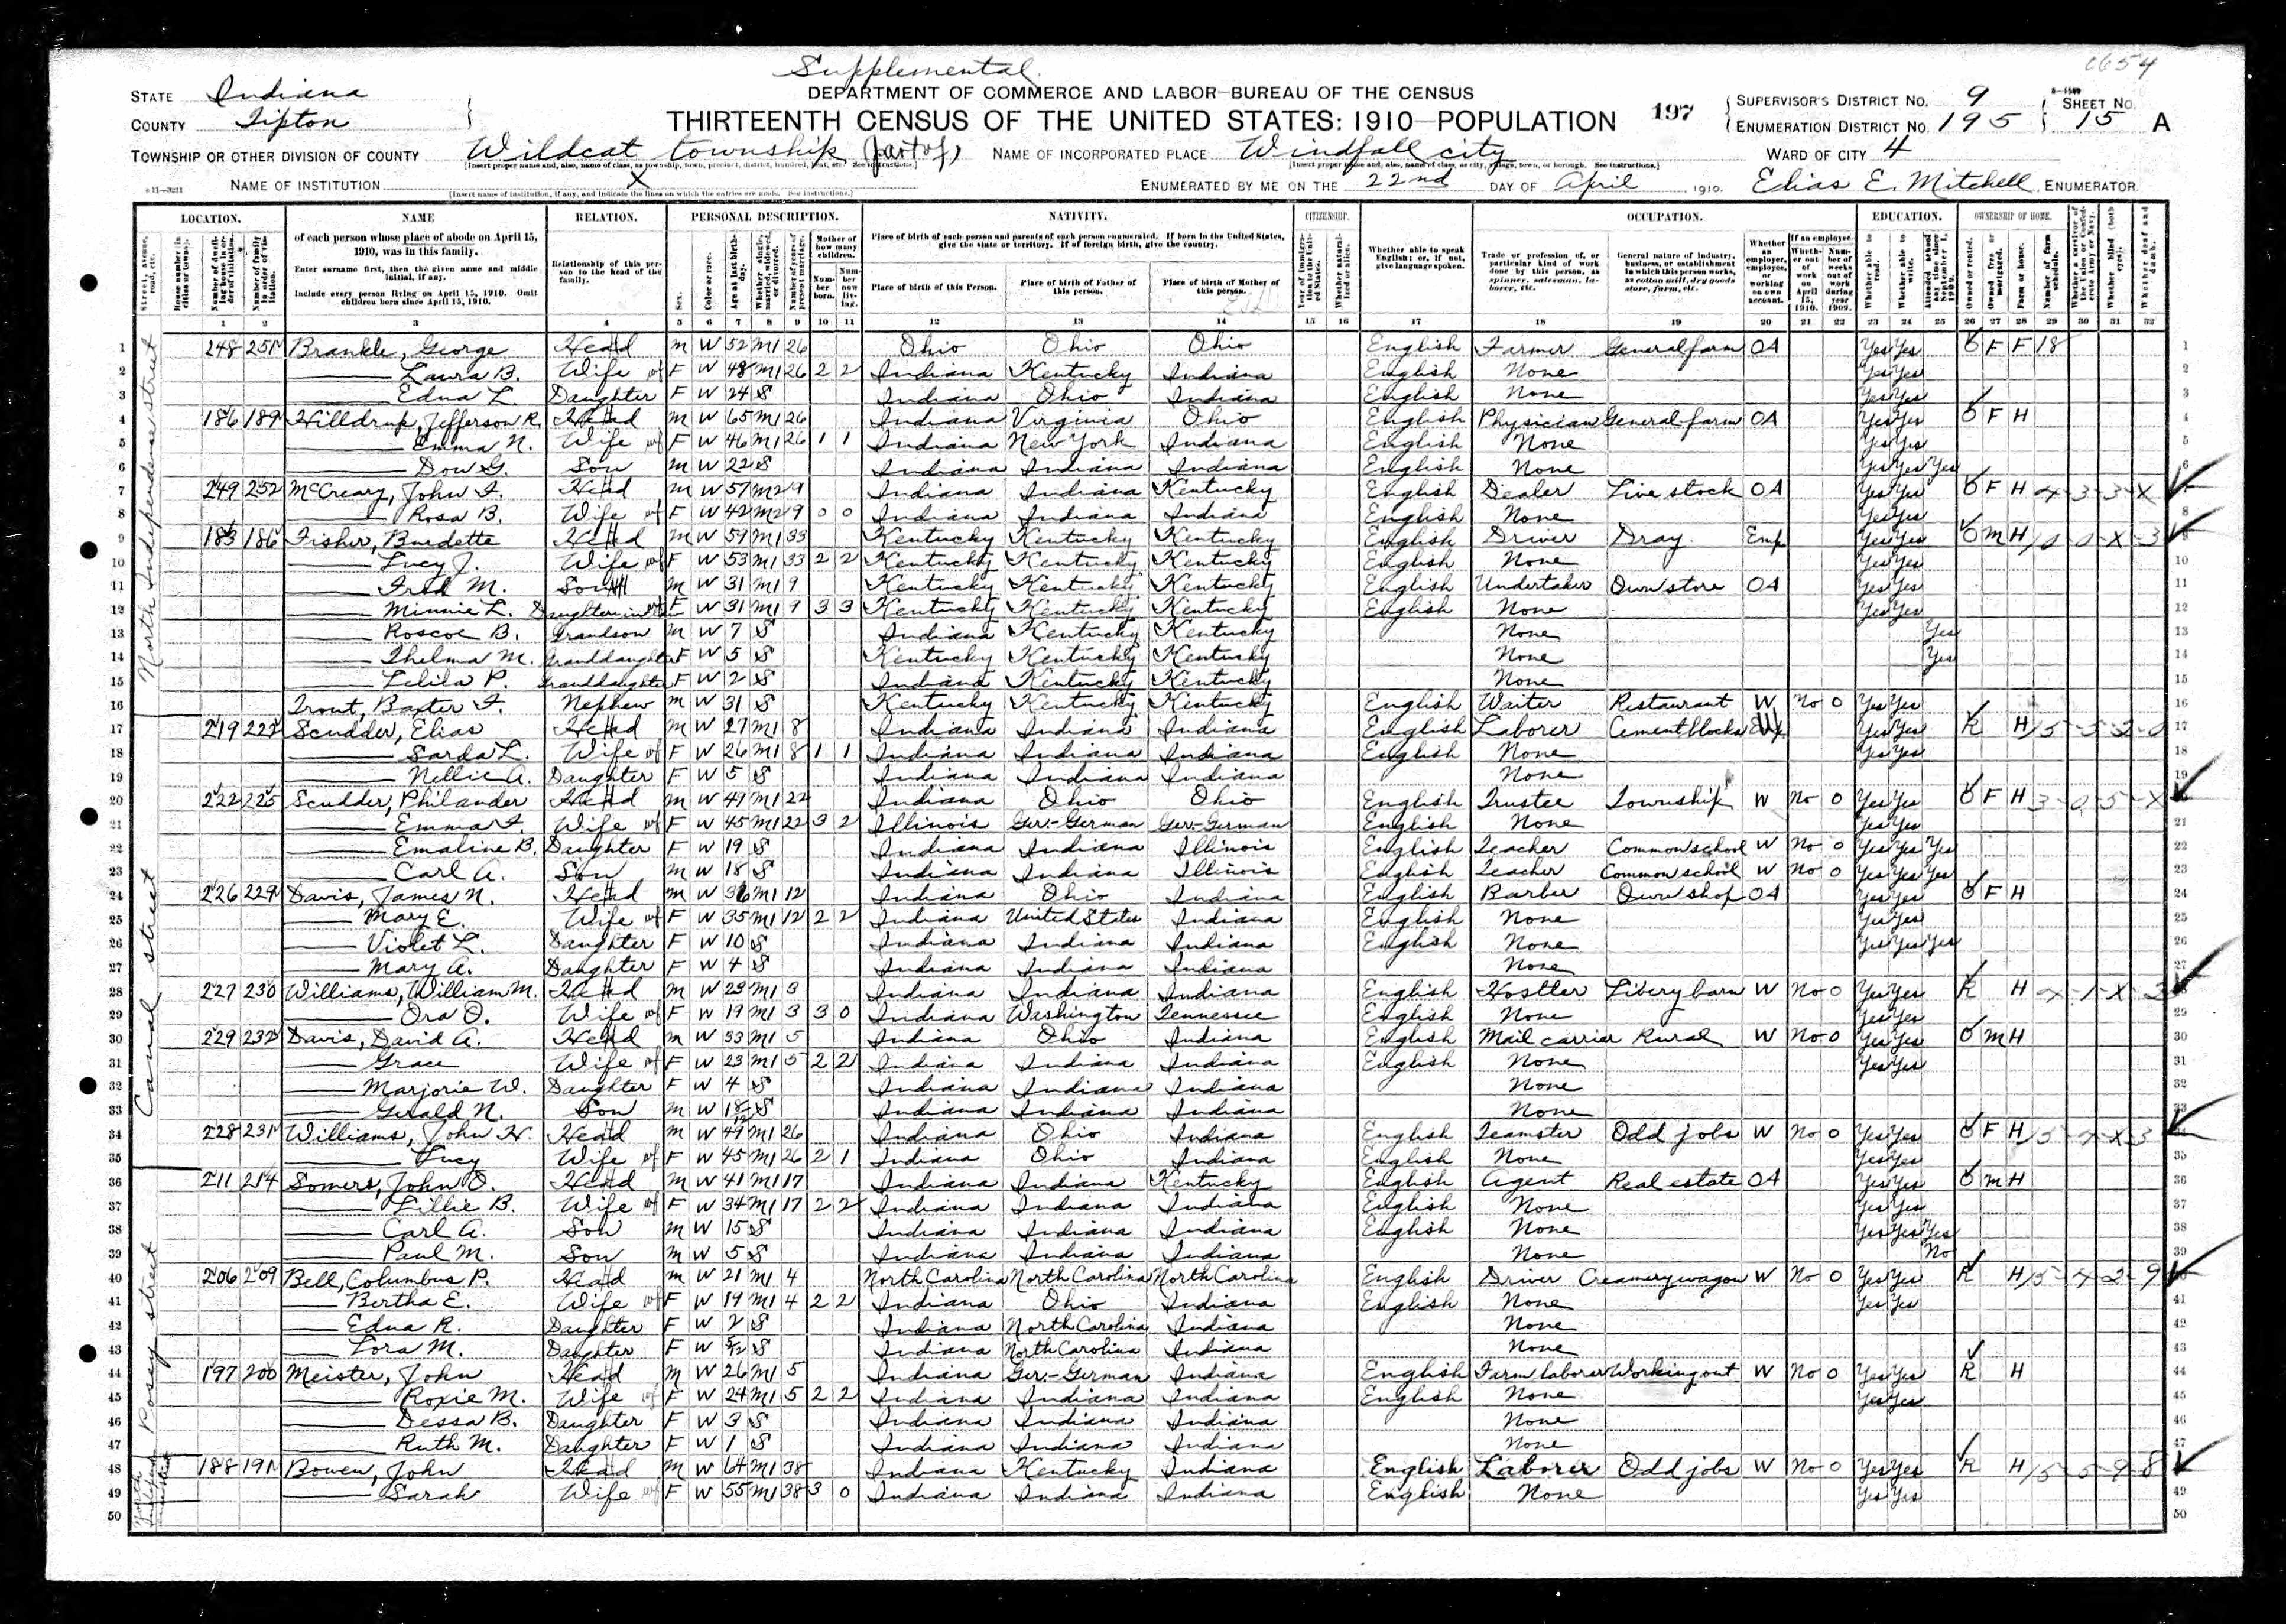 Supplemental
0654
STATE Indiana
DEPARTMENT OF COMMERCE AND LABOR—BUREAU OF THE CENSUS
COUNTY Tipton
THIRTEENTH CENSUS OF THE UNITED STATES: 1910—POPULATION
197
SUPERVISOR'S DISTRICT NO. 9
ENUMERATION DISTRICT NO. 195
SHEET NO. 15 A
TOWNSHIP OR OTHER DIVISION OF COUNTY Wildcat township (part of)
NAME OF INCORPORATED PLACE Windfall city
WARD OF CITY 4
NAME OF INSTITUTION X
ENUMERATED BY ME ON THE 22nd DAY OF April, 1910. Elias E. Mitchell, ENUMERATOR.
LOCATION. NAME RELATION. PERSONAL DESCRIPTION. NATIVITY. CITIZENSHIP. OCCUPATION. EDUCATION. OWNERSHIP OF HOME.
of each person whose place of abode on April 15, 1910, was in this family.
Enter surname first, then the given name and middle initial, if any.
Include every person living on April 15, 1910. Omit children born since April 15, 1910.
Relationship of this person to the head of the family.
Place of birth of each person and parents of each person enumerated. If born in the United States, give the state or territory. If of foreign birth, give the country.
Place of birth of this Person. Place of birth of Father of this person. Place of birth of Mother of this person.
Whether able to speak English; or, if not, give language spoken.
1 2 3 4 5 6 7 8 9 10 11 12 13 14 15 16 17 18 19 20 21 22 23 24 25 26 27 28 29 30 31 32
North Independence street
1 248 251 Brankle, George Head M W 52 M1 26 Ohio Ohio Ohio English Farmer General farm OA Yes Yes O F F 18
2 Laura B. Wife F W 48 M1 26 2 2 Indiana Kentucky Indiana English None Yes Yes
3 Edna L. Daughter F W 24 S Indiana Ohio Indiana English None Yes Yes
4 186 189 Hilldrup, Jefferson R. Head M W 65 M1 26 Indiana Virginia Ohio English Physician General farm OA Yes Yes O F H
5 Emma N. Wife F W 46 M1 26 1 1 Indiana New York Indiana English None Yes Yes
6 Dow G. Son M W 22 S Indiana Indiana Indiana English None Yes Yes Yes
7 249 252 McCreary, John F. Head M W 57 M2 9 Indiana Indiana Kentucky English Dealer Live stock OA Yes Yes O F H 4-3-3-X
8 Rosa B. Wife F W 42 M2 9 0 0 Indiana Indiana Indiana English None Yes Yes
9 183 186 Fisher, Burdette Head M W 59 M1 33 Kentucky Kentucky Kentucky English Driver Dray Emp Yes Yes O M H
10 Lucy J. Wife F W 53 M1 33 2 2 Kentucky Kentucky Kentucky English None Yes Yes
11 Fred M. Son M W 31 M1 9 Kentucky Kentucky Kentucky English Undertaker Own store OA Yes Yes
12 Minnie L. Daughter in law F W 31 M1 9 3 3 Kentucky Kentucky Kentucky English None Yes Yes
13 Roscoe B. Grandson M W 7 S Indiana Kentucky Kentucky None Yes
14 Thelma M. Granddaughter F W 5 S Kentucky Kentucky Kentucky None Yes
15 Lelila P. Granddaughter F W 2 S Indiana Kentucky Kentucky None
16 Trout, Baxter F. Nephew M W 31 S Kentucky Kentucky Kentucky English Waiter Restaurant W No 0 Yes Yes
Canal street
17 219 222 Scudder, Elias Head M W 27 M1 8 Indiana Indiana Indiana English Laborer Cement blocks Yes Yes R H 15-5-2-0
18 Sarda L. Wife F W 26 M1 8 1 1 Indiana Indiana Indiana English None Yes Yes
19 Nellie A. Daughter F W 5 S Indiana Indiana Indiana None
20 222 225 Scudder, Philander Head M W 49 M1 22 Indiana Ohio Ohio English Trustee Township W No 0 Yes Yes O F H 3-0-5-X
21 Emma F. Wife F W 45 M1 22 3 2 Illinois Ger.-German Ger.-German English None Yes Yes
22 Emaline B. Daughter F W 19 S Indiana Indiana Illinois English Teacher Common school W No 0 Yes Yes Yes
23 Carl A. Son M W 18 S Indiana Indiana Illinois English Teacher Common school W No 0 Yes Yes Yes
24 226 229 Davis, James N. Head M W 36 M1 12 Indiana Ohio Indiana English Barber Own shop OA Yes Yes O F H
25 Mary E. Wife F W 35 M1 12 2 2 Indiana United States Indiana English None Yes Yes
26 Violet L. Daughter F W 10 S Indiana Indiana Indiana English None Yes Yes Yes
27 Mary A. Daughter F W 4 S Indiana Indiana Indiana None
28 227 230 Williams, William M. Head M W 23 M1 3 Indiana Indiana Indiana English Hostler Livery barn W No 0 Yes Yes R H 4-1-X-3
29 Ora O. Wife F W 19 M1 3 3 0 Indiana Washington Tennessee English None Yes Yes
30 229 232 Davis, David A. Head M W 33 M1 5 Indiana Ohio Indiana English Mail carrier Rural W No 0 Yes Yes O M H
31 Grace Wife F W 23 M1 5 2 2 Indiana Indiana Indiana English None Yes Yes
32 Marjorie W. Daughter F W 4 S Indiana Indiana Indiana None
33 Gerald N. Son M W 18/12 S Indiana Indiana Indiana None
34 228 231 Williams, John H. Head M W 49 M1 26 Indiana Ohio Indiana English Teamster Odd jobs W No 0 Yes Yes O F H 15-4-X-3
35 Lucy Wife F W 45 M1 26 2 1 Indiana Ohio Indiana English None Yes Yes
Posey street
36 211 214 Somers, John O. Head M W 41 M1 17 Indiana Indiana Kentucky English Agent Real estate OA Yes Yes O M H
37 Lillie B. Wife F W 34 M1 17 2 2 Indiana Indiana Indiana English None Yes Yes
38 Carl A. Son M W 15 S Indiana Indiana Indiana English None Yes Yes Yes
39 Paul M. Son M W 5 S Indiana Indiana Indiana None No
40 206 209 Bell, Columbus P. Head M W 21 M1 4 North Carolina North Carolina North Carolina English Driver Creamery wagon W No 0 Yes Yes R H 15-4-2-9
41 Bertha E. Wife F W 19 M1 4 2 2 Indiana Ohio Indiana English None Yes Yes
42 Edna R. Daughter F W 2 S Indiana North Carolina Indiana None
43 Lora M. Daughter F W S Indiana North Carolina Indiana None
44 197 200 Meister, John Head M W 26 M1 5 Indiana Ger.-German Indiana English Farm laborer Working out W No 0 Yes Yes R H
45 Roxie M. Wife F W 24 M1 5 2 2 Indiana Indiana Indiana English None Yes Yes
46 Dessa B. Daughter F W 3 S Indiana Indiana Indiana None
47 Ruth M. Daughter F W 1 S Indiana Indiana Indiana None
48 188 191 Bowen, John Head M W 64 M1 38 Indiana Kentucky Indiana English Laborer Odd jobs W No 0 Yes Yes R H 15-5-9-8
49 Sarah Wife F W 55 M1 38 3 0 Indiana Indiana Indiana English None Yes Yes
50